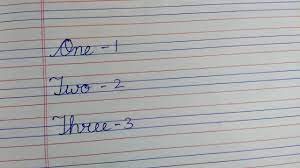 One - 1
Two - 2
Three - 3